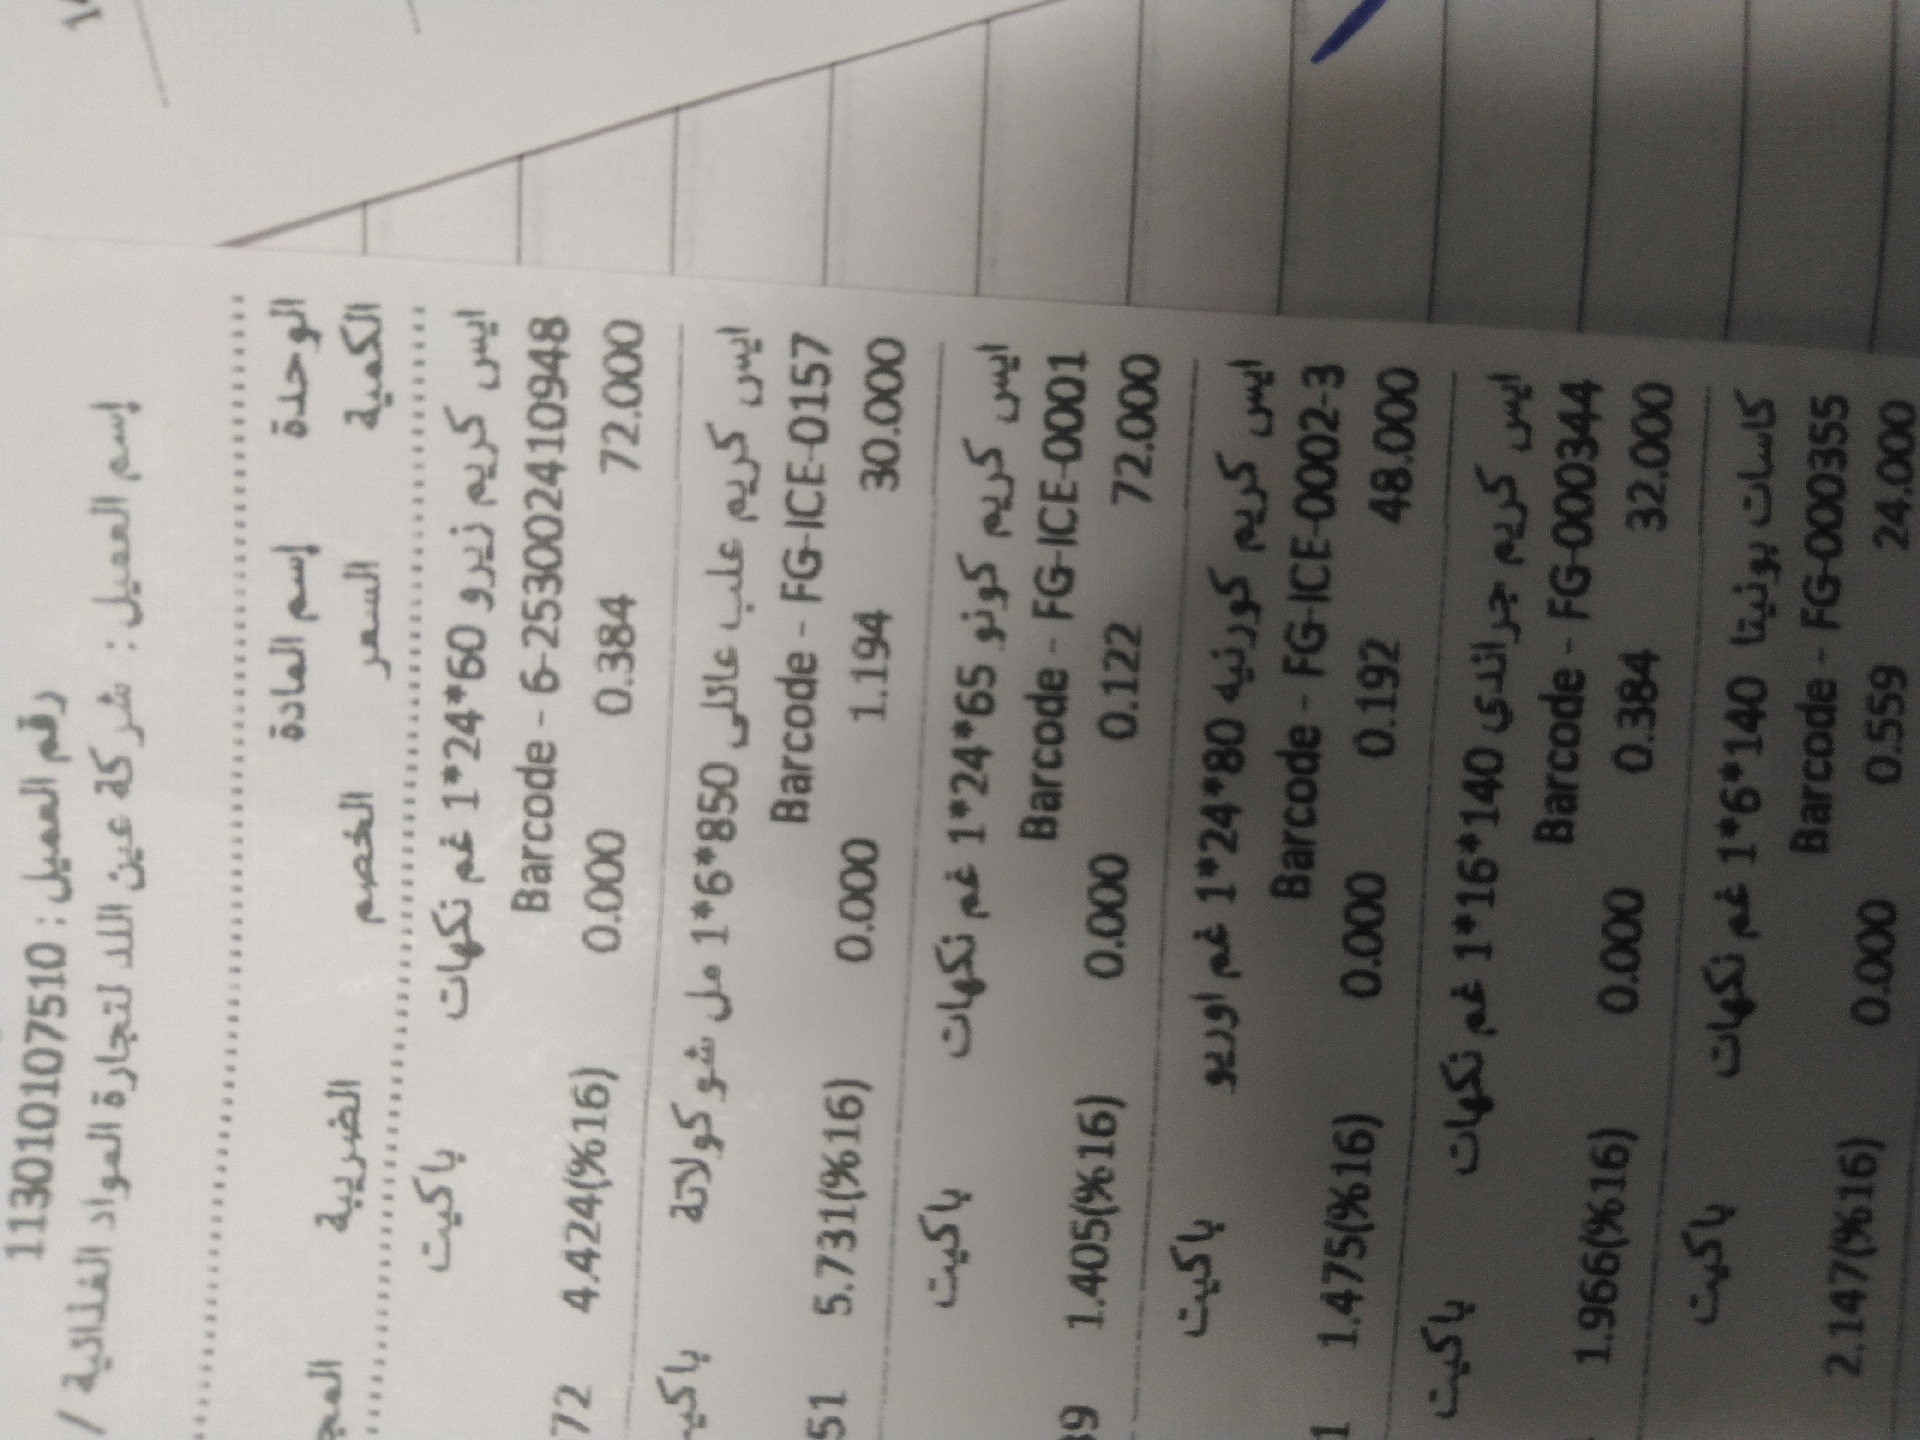 رقم العميل : 113010107510
إسم العميل : شركة عين اللد لتجارة المواد الغذائية /
الوحدة إسم المادة
الكمية السعر الخصم الضريبة
ايس كريم زيرو 60*24*1 غم نكهات باكيت
Barcode - 6-253002410948
72.000 0.384 0.000 4.424(%16)
ايس كريم علب عائلي 850*6*1 مل شوكولاتة
Barcode - FG-ICE-0157
30.000 1.194 0.000 5.731(%16)
ايس كريم كونو 65*24*1 غم نكهات باكيت
Barcode - FG-ICE-0001
72.000 0.122 0.000 1.405(%16)
ايس كريم كورنيه 80*24*1 غم اوريو باكيت
Barcode - FG-ICE-0002-3
48.000 0.192 0.000 1.475(%16)
ايس كريم جراندي 140*16*1 غم نكهات باكيت
Barcode - FG-000344
32.000 0.384 0.000 1.966(%16)
كاسات بونيتا 140*6*1 غم نكهات باكيت
Barcode - FG-000355
24.000 0.559 0.000 2.147(%16)